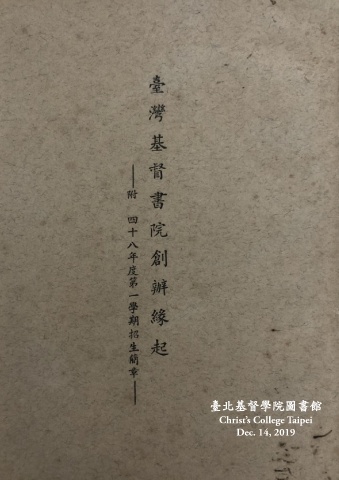 臺灣基督書院創辦緣起
——附 四十八年度第一學期招生簡章——
臺北基督學院圖書館
Christ's College Taipei
Dec. 14, 2019